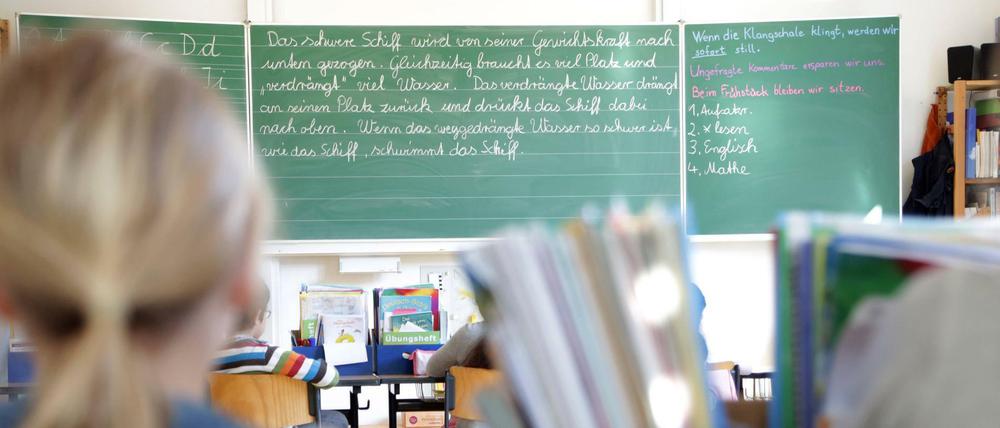 C c D d
Das schwere Schiff wird von seiner Gewichtskraft nach
unten gezogen. Gleichzeitig braucht es viel Platz und
„verdrängt“ viel Wasser. Das verdrängte Wasser drängt
an seinen Platz zurück und drückt das Schiff dabei
nach oben. Wenn das weggedrängte Wasser so schwer ist,
wie das Schiff, schwimmt das Schiff.
Wenn die Klangschale klingt, werden wir
sofort still.
Ungefragte Kommentare ersparen wir uns.
Beim Frühstück bleiben wir sitzen.
1, Aufsatz.
2. x lesen
3, Englisch
4, Mathe
Übungsheft